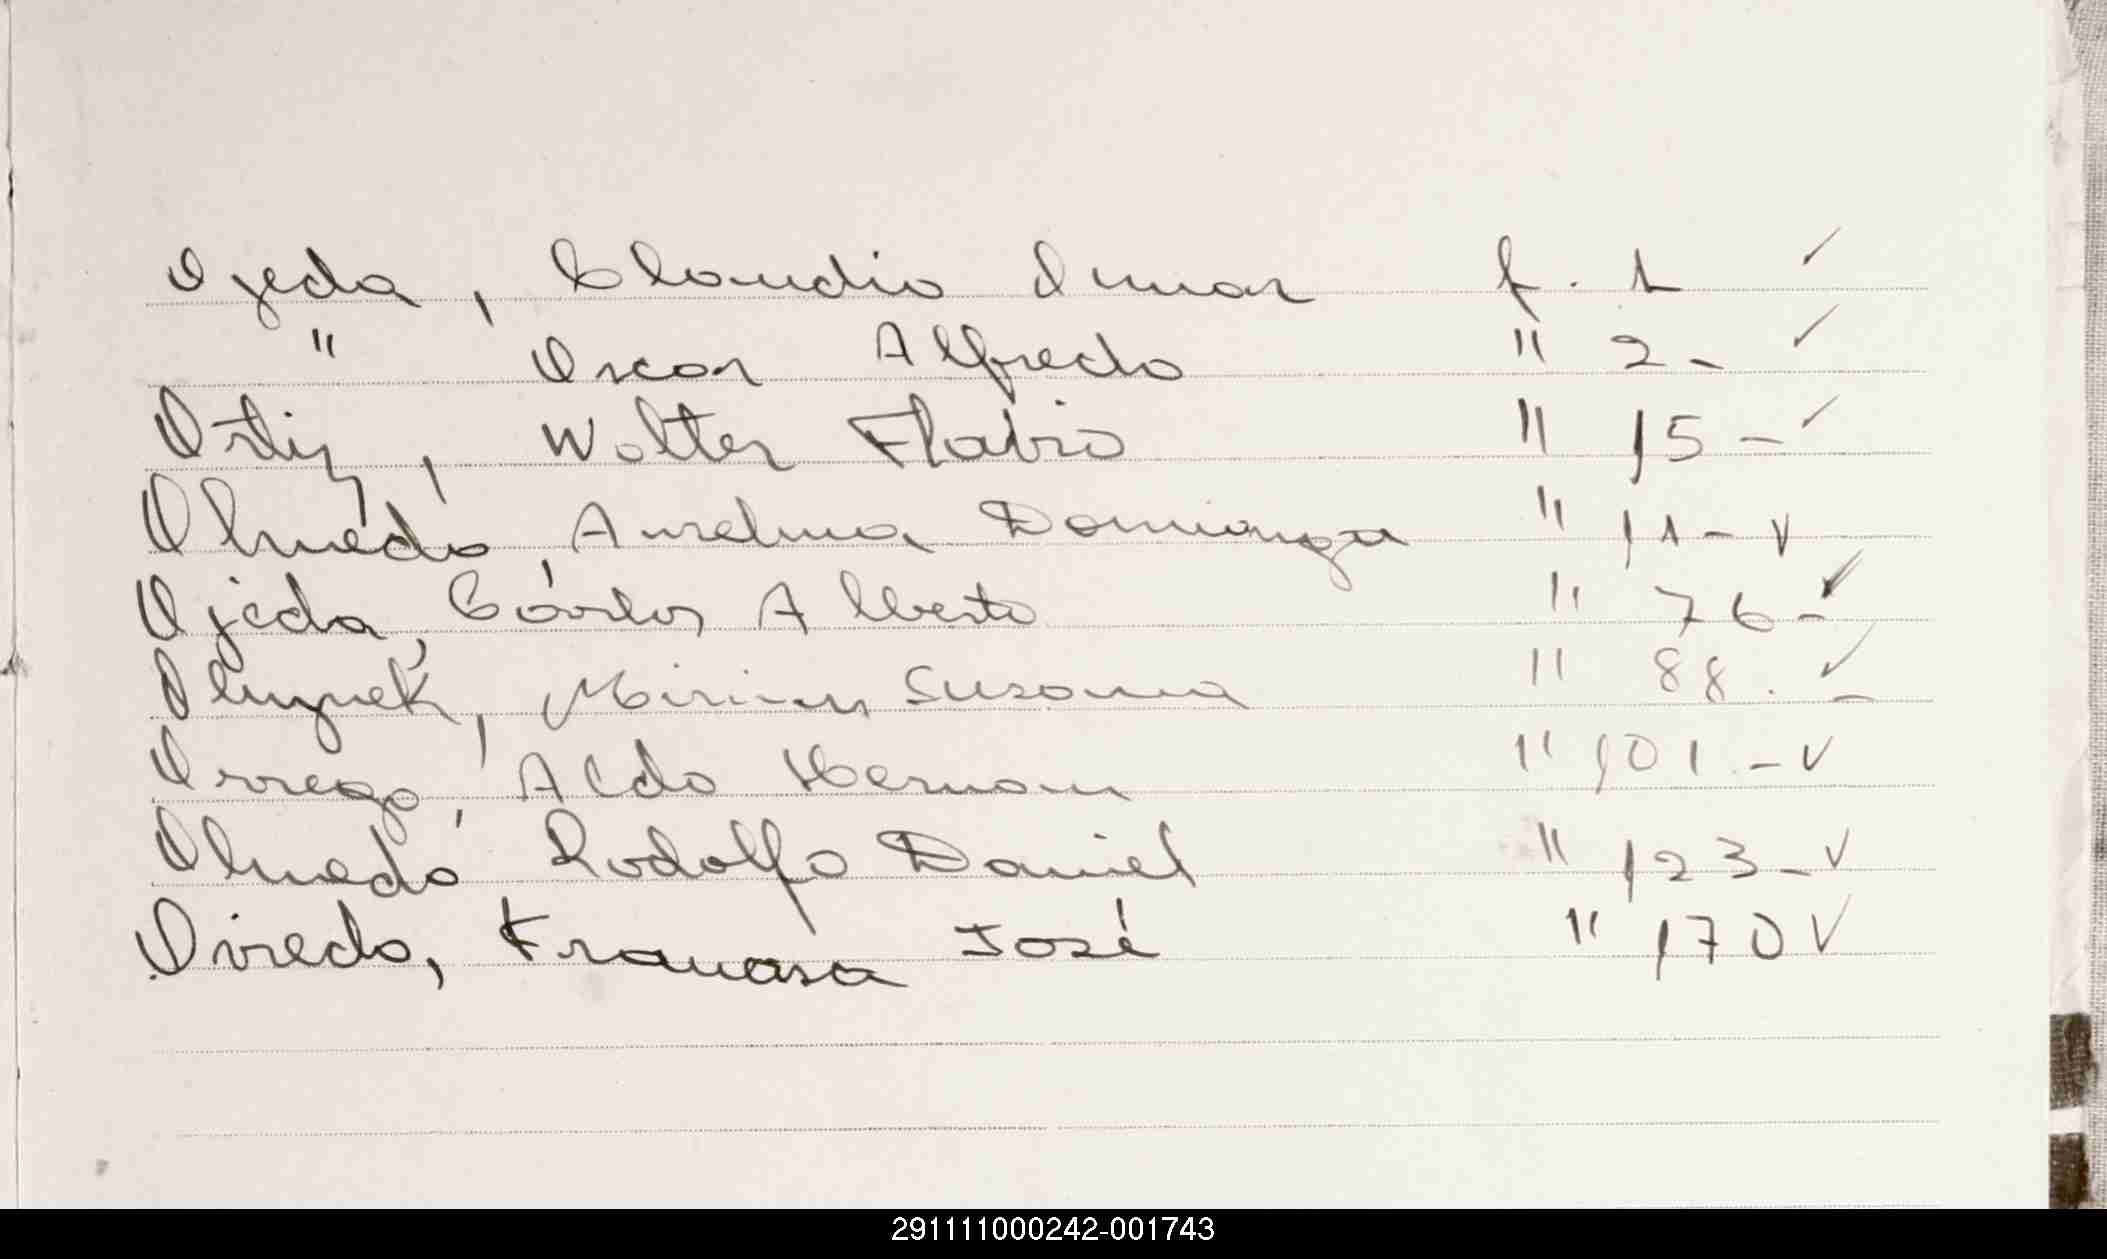 Ojeda, Claudio Omar f. 1 ✓
" Oscar Alfredo " 2 - ✓
Ortiz, Walter Flabio " 15 - ✓
Olmedo, Anselma Dominga " 11 - ✓
Ojeda, Carlos Alberto " 76 - ✓
Miriam Susana " 88. ✓ -
Orrego, Aldo Hernan " 101 - ✓
Olmedo Rodolfo Daniel " 123 - ✓
Oviedo, José " 170 ✓
291111000242-001743